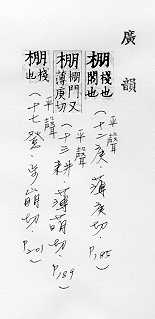 廣韻
棚棧也閣也 平聲(十二庚．薄庚切．P.185)
棚棚閣又薄庚切 平聲(十三耕．薄萌切．P.189)
棚棧也 平聲(十七登．步崩切．P.201)